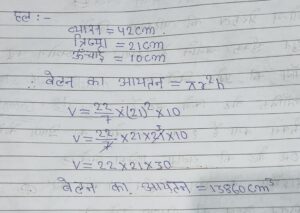 हल :-
व्यास = 42cm
त्रिज्या = 21cm
ऊँचाई = 10cm
∴ बेलन का आयतन = πr²h
V = 22/7 × (21)² × 10
V = 22/7 × 21 × 21 3 × 10
V = 22 × 21 × 30
∴ बेलन का आयतन = 13860cm³